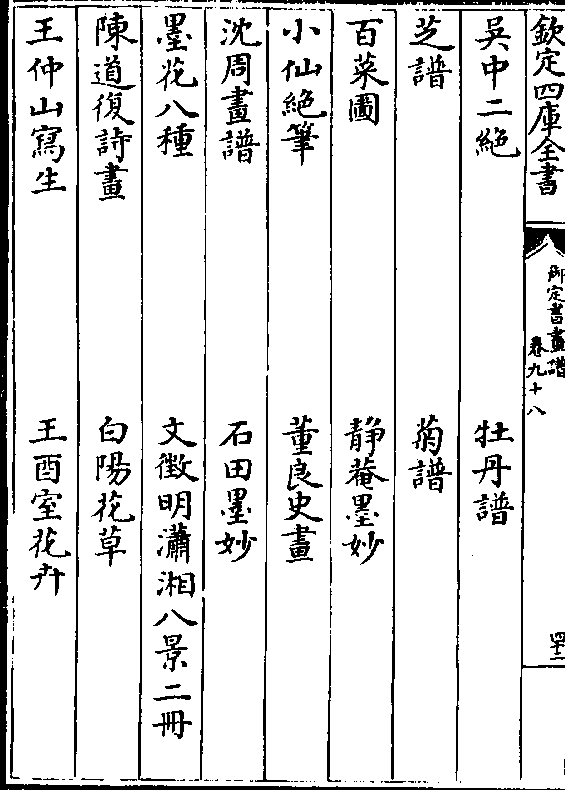 欽定四庫全書
御定書畫譜
卷九十八
四十二
吳中二絶 牡丹譜
芝譜 菊譜
百菜圃 静菴墨妙
小仙絶筆 董良史畫
沈周畫譜 石田墨妙
墨花八種 文徵明瀟湘八景二冊
陳道復詩畫 白陽花草
王仲山寫生 王酉室花卉